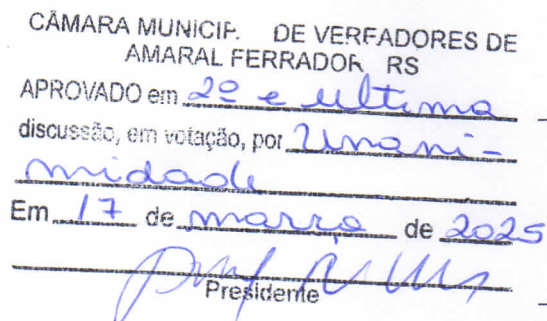 CÂMARA MUNICIP. DE VERFADORES DE
AMARAL FERRADOR RS
APROVADO em 2º e ultima
discussão, em votação, por Unani-
midade
Em 17 de março de 2025
Presidente